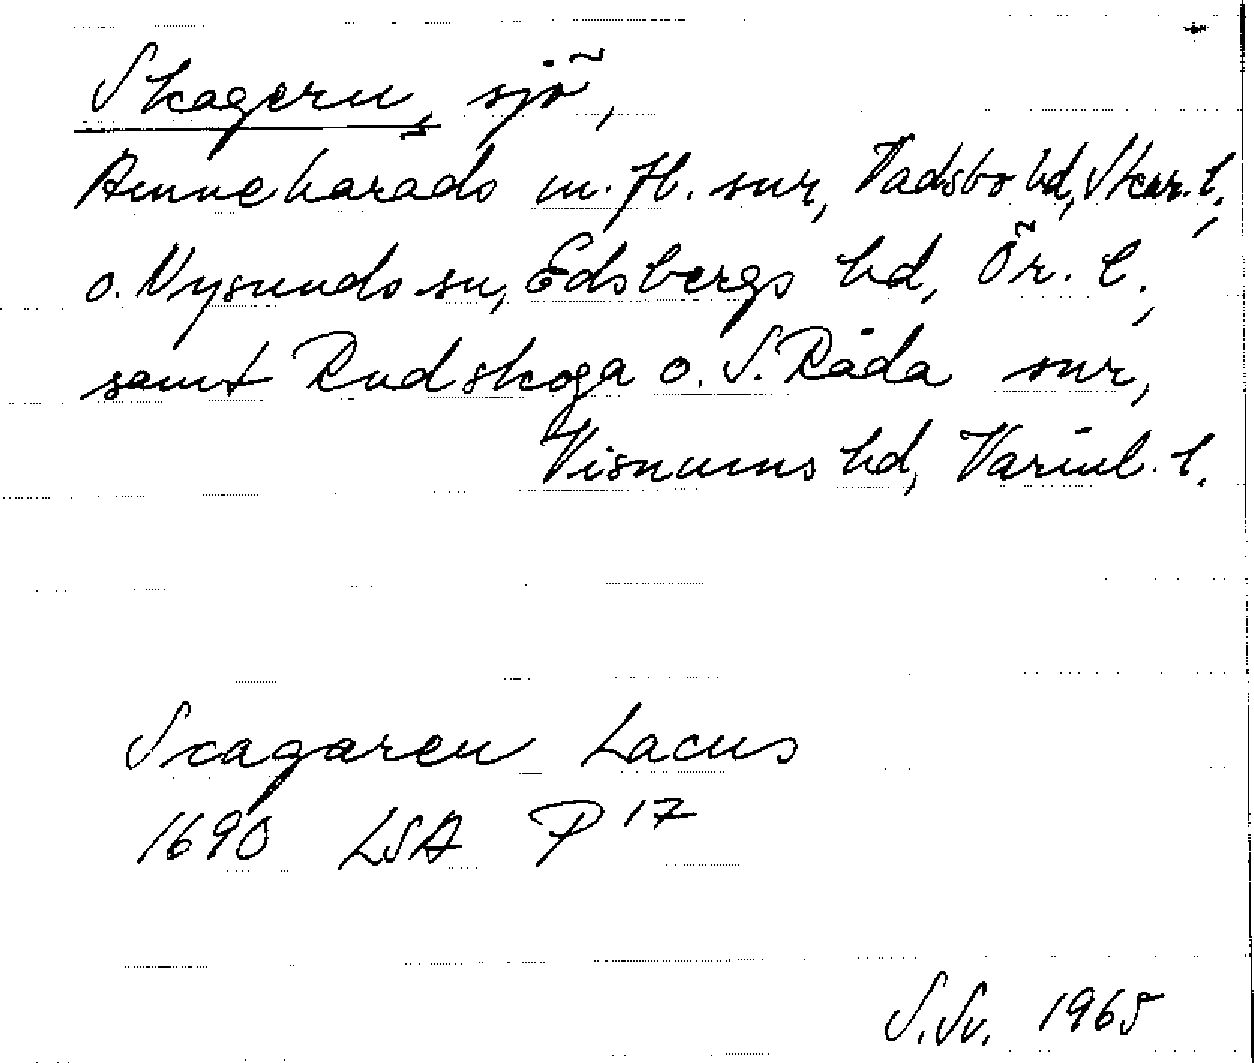 Skagern, sjö,
Amneharads m. fl. snr, Vadsbo hd, Skar. l.,
o. Nysunds sn, Edsbergs hd, Ör. l.,
samt Rudskoga o. S. Råda snr,
Visnums hd, Värml. l.
Scagaren Lacus
1690 LSA P 17
S. Sv. 1965